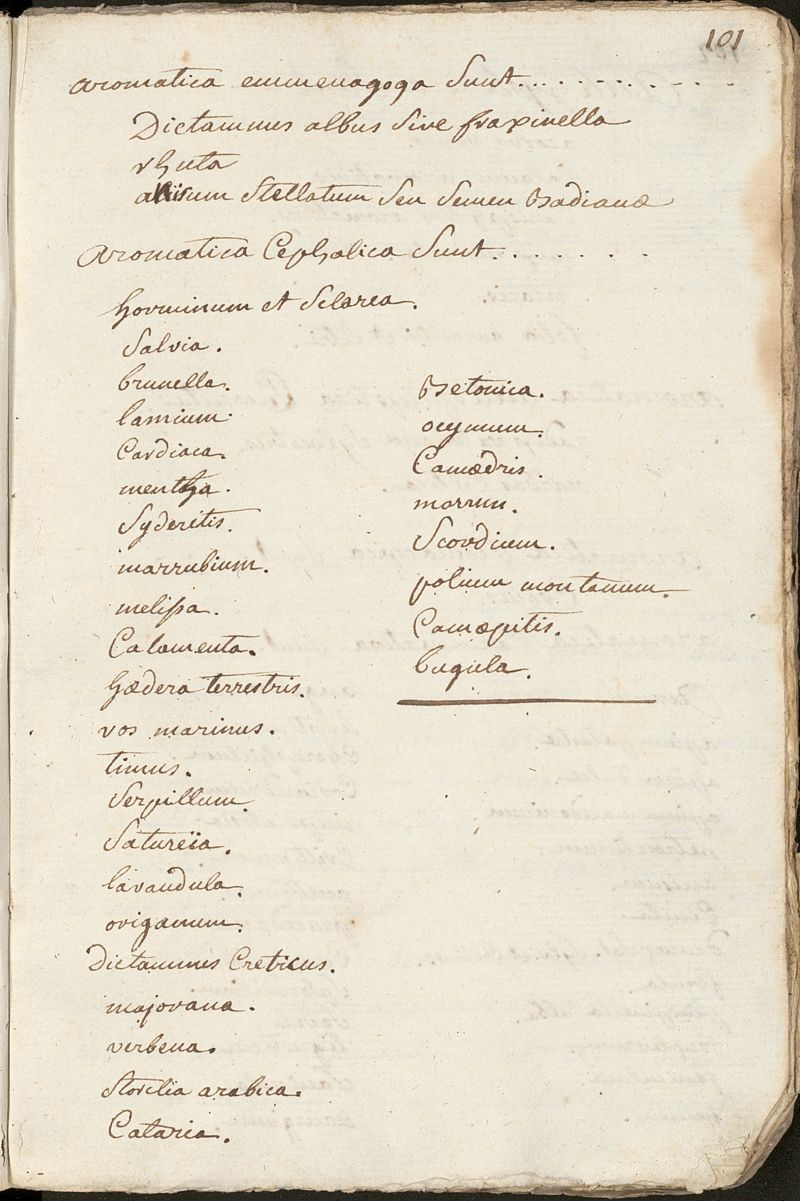 101
aromatica emmenagoga Sunt. . . . . . . . . . . .
Dictammus albus Sive fraxinella
rhuta
anisum Stellatum Seu Semen Badianæ
aromatica Cephalica Sunt. . . . . . .
horminum et Sclarea.
Salvia.
brunella.
lamium.
Cardiaca.
mentha.
Syderitis.
marrubium.
melissa.
Calamenta.
hædera terrestris.
ros marinus.
timus.
Serpillum.
Satureïa.
lavandula.
origanum.
Dictammus Creticus.
majorana.
verbena.
Stoecilia arabica.
Cataria.
Betonica.
ocymum.
Camædris.
marrum.
Scordium.
polium montanum.
Camæpitis.
bugula.